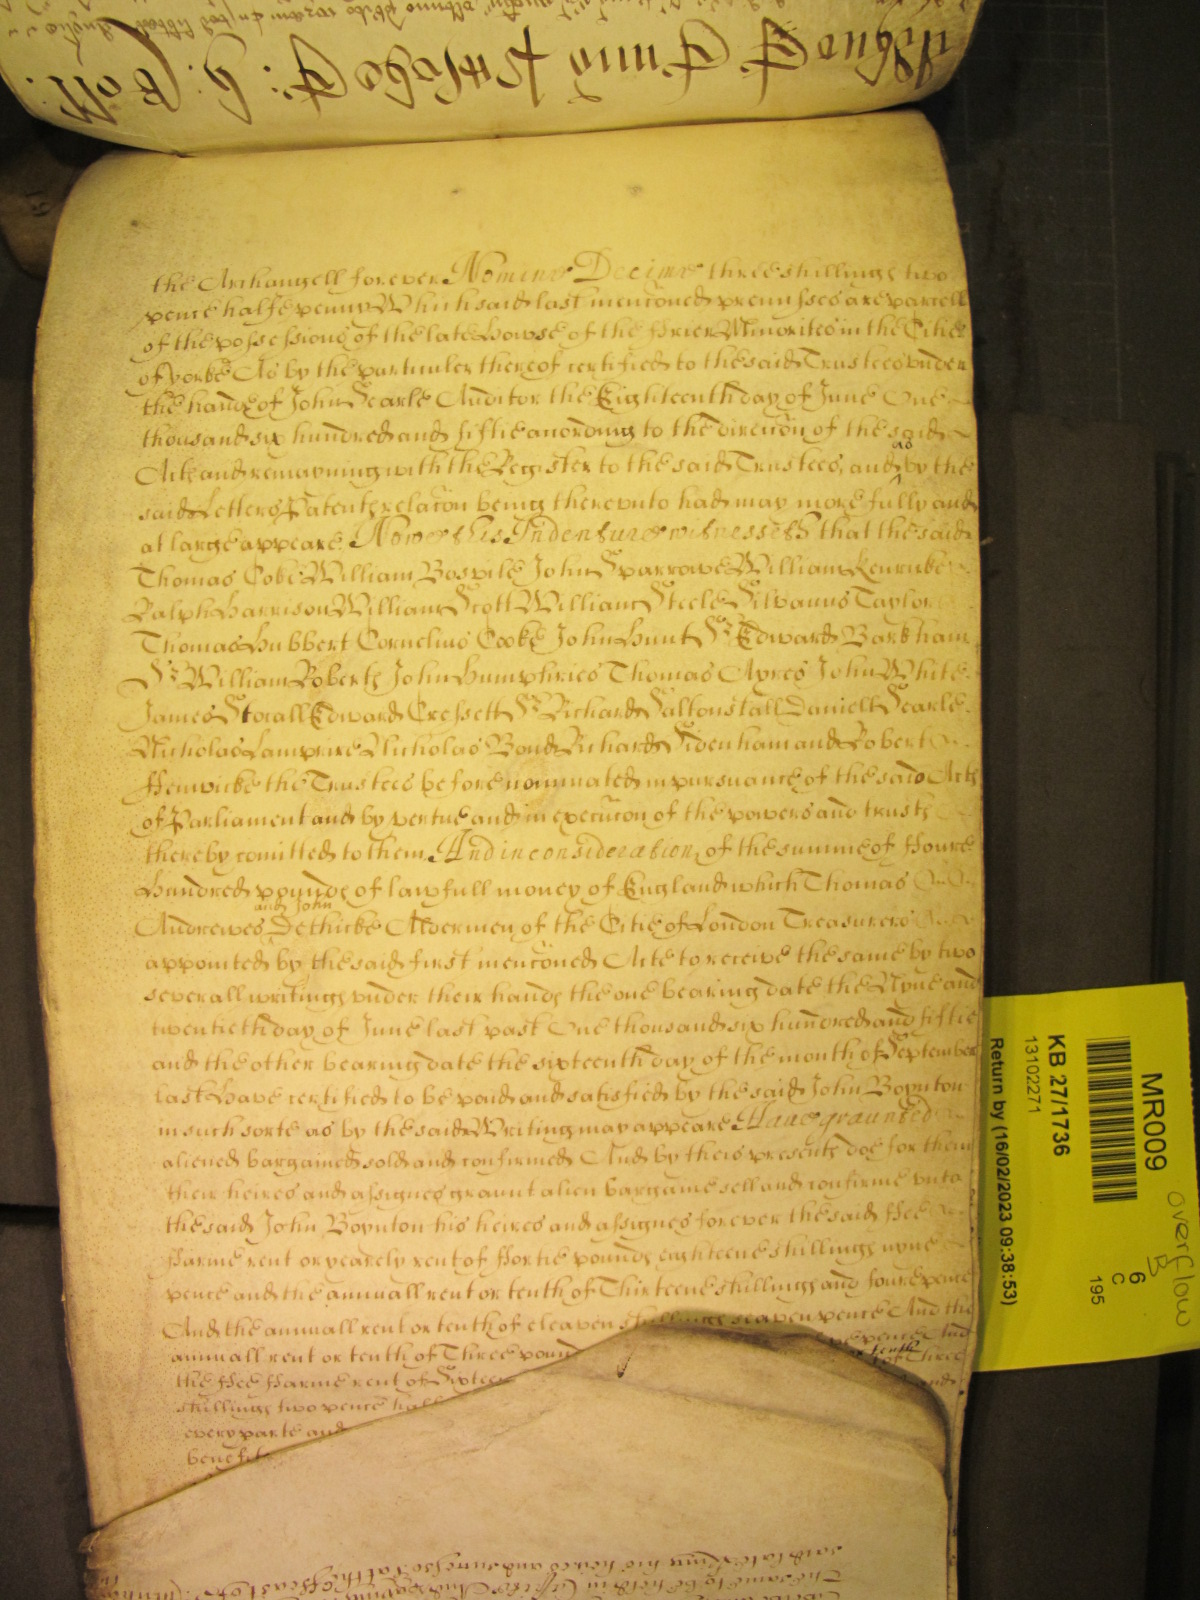 the Archangell forever Nomine Decime three shillings two
pence halfe penny Which said last mencioned premisses are parcell
of the possessions of the late Howse of the Frier Minorites in the Citie
of yorke As by the particuler thereof certified to the said Trustees vnder
the hande of John Searle Auditor the Eighteenth day of June One
thousand six hundred and fiftie according to the direccon of the said
Acte and remayning with the Register to the said Trustees, and as by the
said Letters Patents relacon being therevnto had may more fully and
at large appeare. Nowe this Indenture witnesseth that the said
Thomas Coke William Bosvile John Sparrowe William Kenricke
Ralph Harrison William Scott William Steele Silvanus Taylor
Thomas Hubbert Cornelius Cooke John Hunt Sr Edward Barkham
Sr William Roberts John Humphries Thomas Ayres John White
James Stocall Edward Cressett Sr Richard Saltonstall Daniell Searle
Nicholas Lampriere Nicholas Bond Richard Sidenham and Robert
Fenwicke the Trustees before nominated in pursuance of the said Acts
of Parliament and by vertue and in execucon of the powers and trusts
thereby comitted to them And in consideration of the summe of Foure
Hundred pounds of lawfull money of England which Thomas
Andrewes and John Dethicke Aldermen of the Citie of London Treasurers
appointed by the said first mencioned Acte to receive the same by two
severall writings vnder their hands the one bearing date the Nyne and
twentieth day of June last past One thousand six hundred and fiftie
and the other bearing date the sixteenth day of the month of September
last Have certified to be paid and satisfied by the said John Boynton
in such sorte as by the said Writing may appeare Haue graunted
aliened bargained sold and confirmed And by theis presents doe for them
their heires and assignes graunt alien bargaine sell and confirme vnto
the said John Boynton his heires and assignes forever the said Fee
Farme rent or yearely rent of Fortie pounds eighteene shillings nyne
pence and the annuall rent or tenth of Thirteene shillings and foure pence
And the annuall rent or tenth of eleaven shillings seaven pence And the
annuall rent or tenth of Three pound
the Fee Farme rent of Sixteen
shillings two pence halfe
every parte and
benefits
MR009
KB 27/1736
13102271
Return by (16/02/2023 09:38:53)
6
C
195
overflow
B